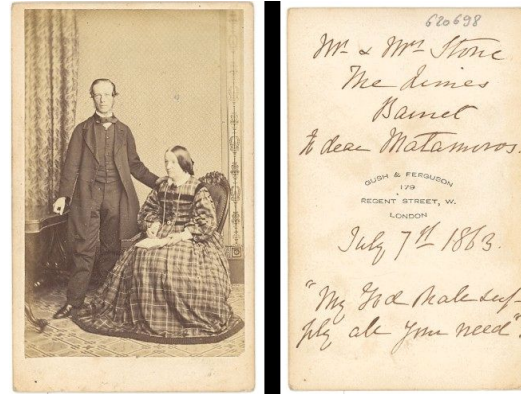 620698
Mr. & Mrs. Stone
The Limes
Barnet
to dear Matamoros.
GUSH & FERGUSON
179
REGENT STREET, W.
LONDON
July 7th 1863.
"My God shall sup-
ply all your need".